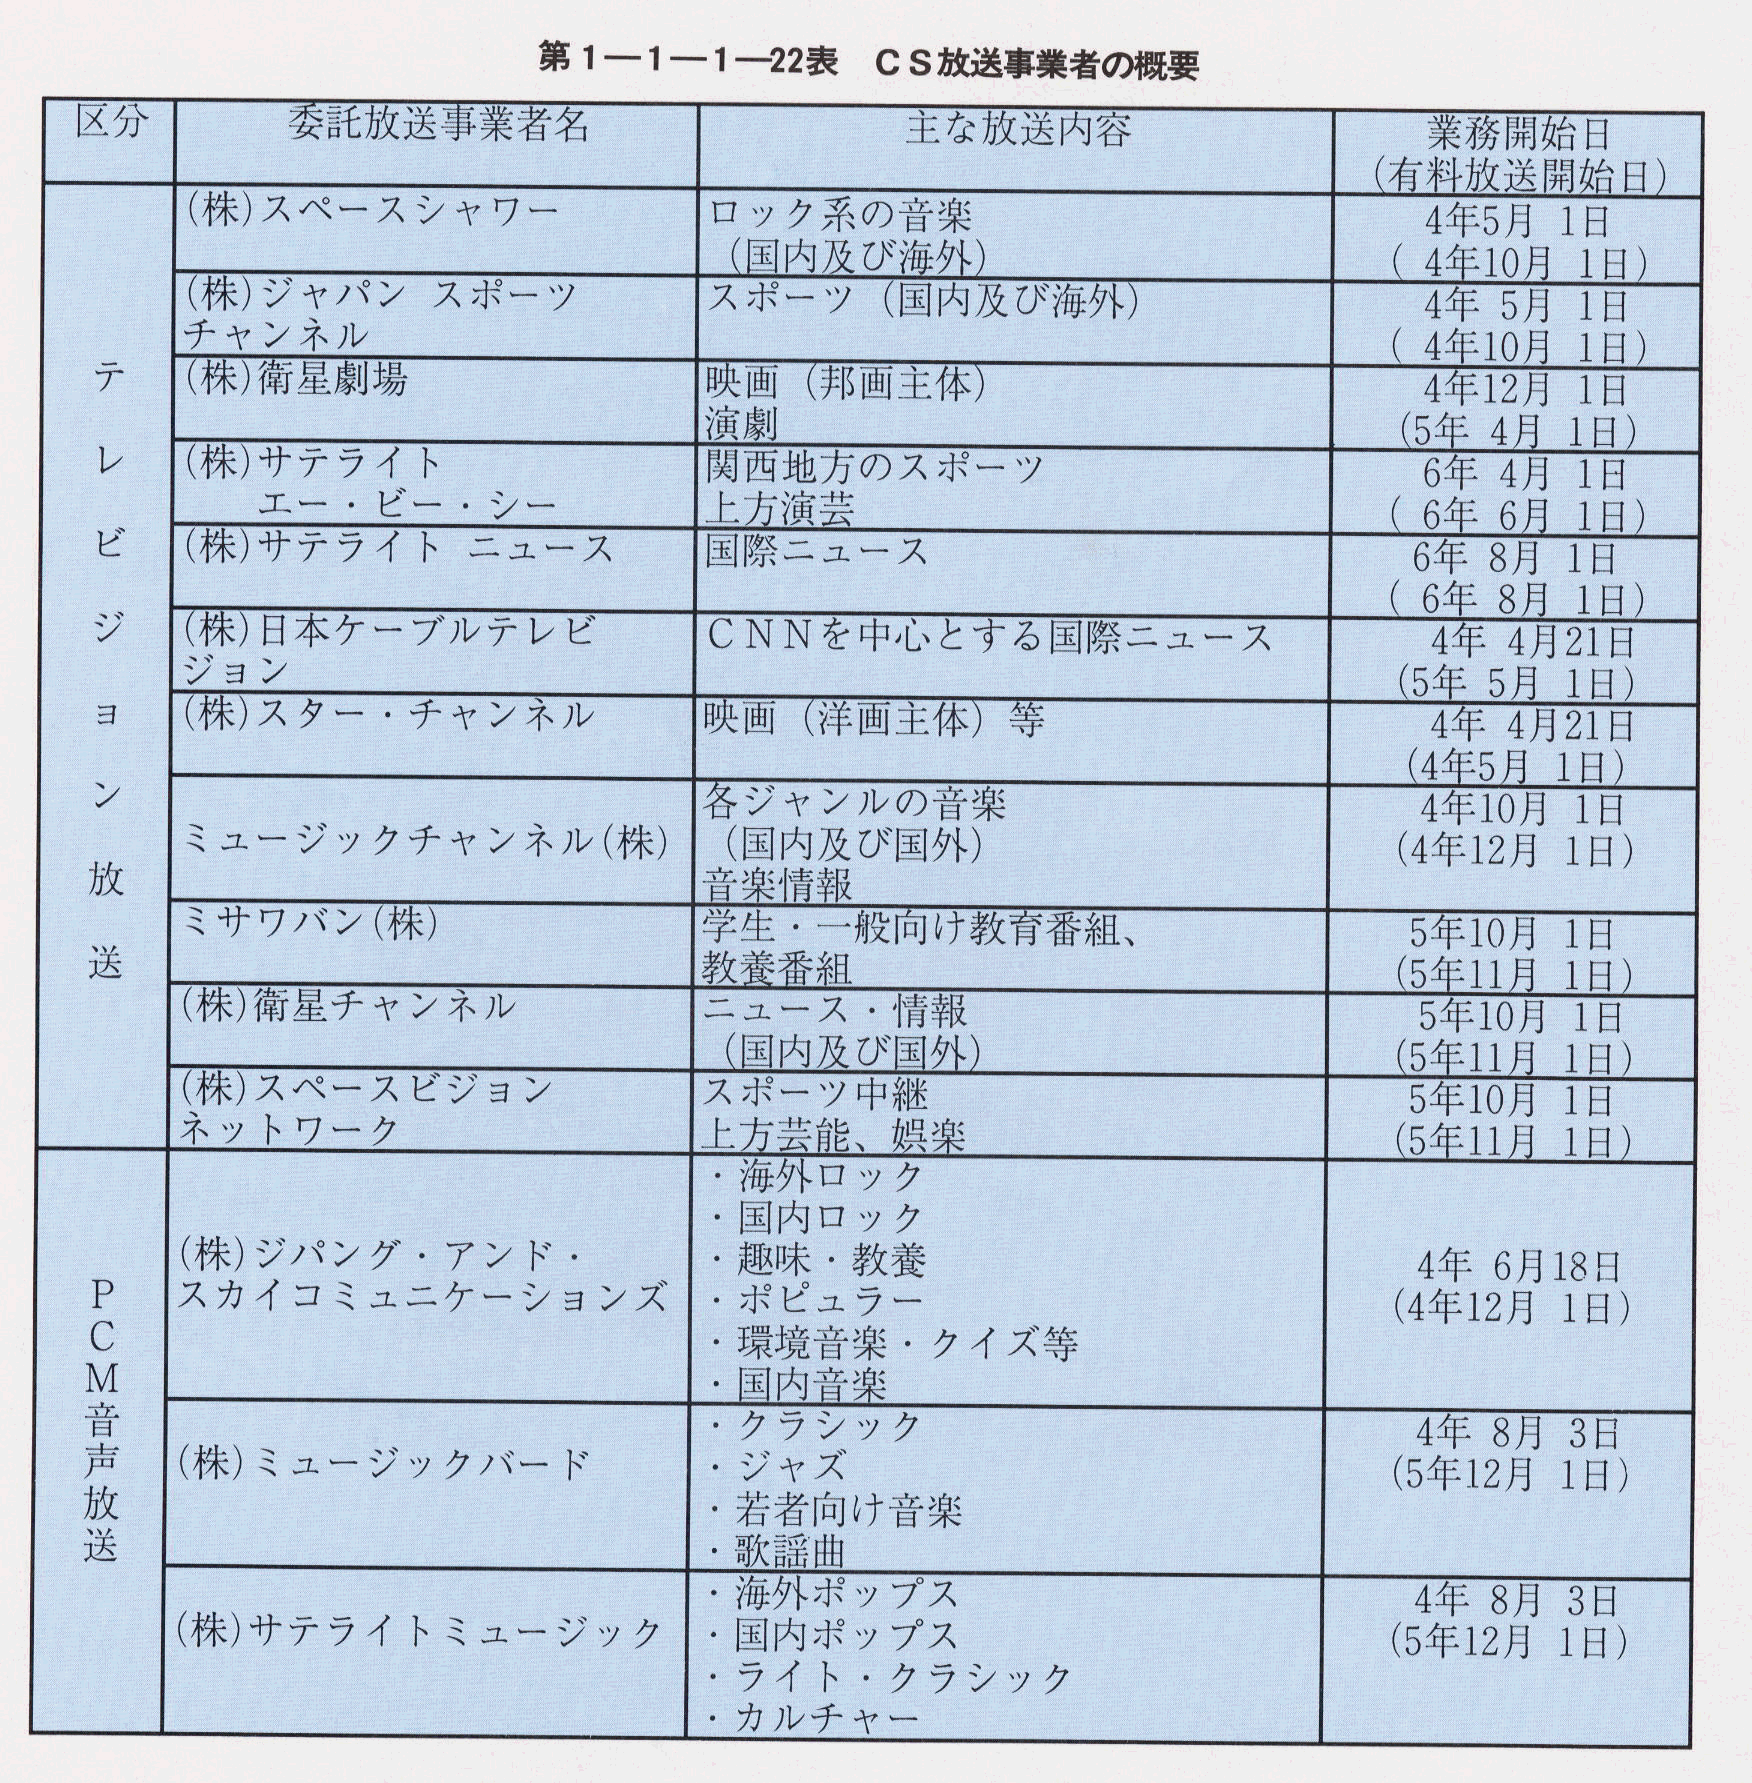 第1―1―1―22表　CS放送事業者の概要
区分
委託放送事業者名
主な放送内容
業務開始日
(有料放送開始日)
テレビジョン放送
(株)スペースシャワー
ロック系の音楽
（国内及び海外）
4年5月 1日
( 4年10月 1日)
(株)ジャパン スポーツ
チャンネル
スポーツ（国内及び海外）
4年 5月 1日
( 4年10月 1日)
(株)衛星劇場
映画（邦画主体）
演劇
4年12月 1日
(5年 4月 1日)
(株)サテライト
エー・ビー・シー
関西地方のスポーツ
上方演芸
6年 4月 1日
( 6年 6月 1日)
(株)サテライト ニュース
国際ニュース
6年 8月 1日
( 6年 8月 1日)
(株)日本ケーブルテレビ
ジョン
CNNを中心とする国際ニュース
4年 4月21日
(5年 5月 1日)
(株)スター・チャンネル
映画（洋画主体）等
4年 4月21日
(4年5月 1日)
ミュージックチャンネル(株)
各ジャンルの音楽
（国内及び国外）
音楽情報
4年10月 1日
(4年12月 1日)
ミサワバン(株)
学生・一般向け教育番組、
教養番組
5年10月 1日
(5年11月 1日)
(株)衛星チャンネル
ニュース・情報
（国内及び国外）
5年10月 1日
(5年11月 1日)
(株)スペースビジョン
ネットワーク
スポーツ中継
上方芸能、娯楽
5年10月 1日
(5年11月 1日)
PCM音声放送
(株)ジパング・アンド・
スカイコミュニケーションズ
・海外ロック
・国内ロック
・趣味・教養
・ポピュラー
・環境音楽・クイズ等
・国内音楽
4年 6月18日
(4年12月 1日)
(株)ミュージックバード
・クラシック
・ジャズ
・若者向け音楽
・歌謡曲
4年 8月 3日
(5年12月 1日)
(株)サテライトミュージック
・海外ポップス
・国内ポップス
・ライト・クラシック
・カルチャー
4年 8月 3日
(5年12月 1日)